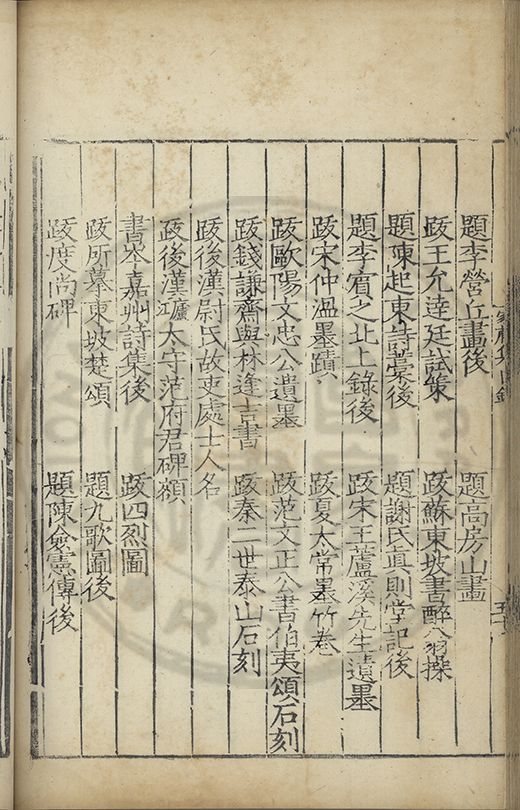 題李營丘畫後　題高房山畫
跋王允達廷試策　跋蘇東坡書醉翁操
題陳起東詩藁後　題謝氏真則堂記後
題李賓之北上錄後　跋宋王蘆溪先生遺墨
跋宋仲溫墨蹟　跋夏太常墨竹卷
跋歐陽文忠公遺墨　跋范文正公書伯夷頌石刻
跋錢謙齋與林逢吉書　跋秦二世泰山石刻
跋後漢尉氏故吏處士人名
跋後漢太守范府君碑額
書岑嘉州詩集後　跋四烈圖
跋所摹東坡楚頌　題九歌圖後
跋度尚碑　題陳僉憲傳後
家藏集目錄